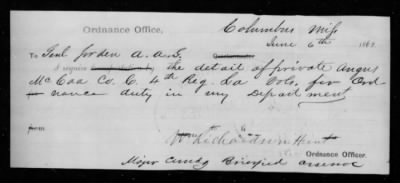 Ordnance Office.
Columbus Miss
June 6th 1862
To Genl Jorden A. A. G.
I require the detail of private Angus
McCoa Co. C. 4th Reg. La Vols. for Ord
nance duty in my Department
from
W Richardson Hunt
Ordnance Officer.
Major Comdg Briarfield arsenal